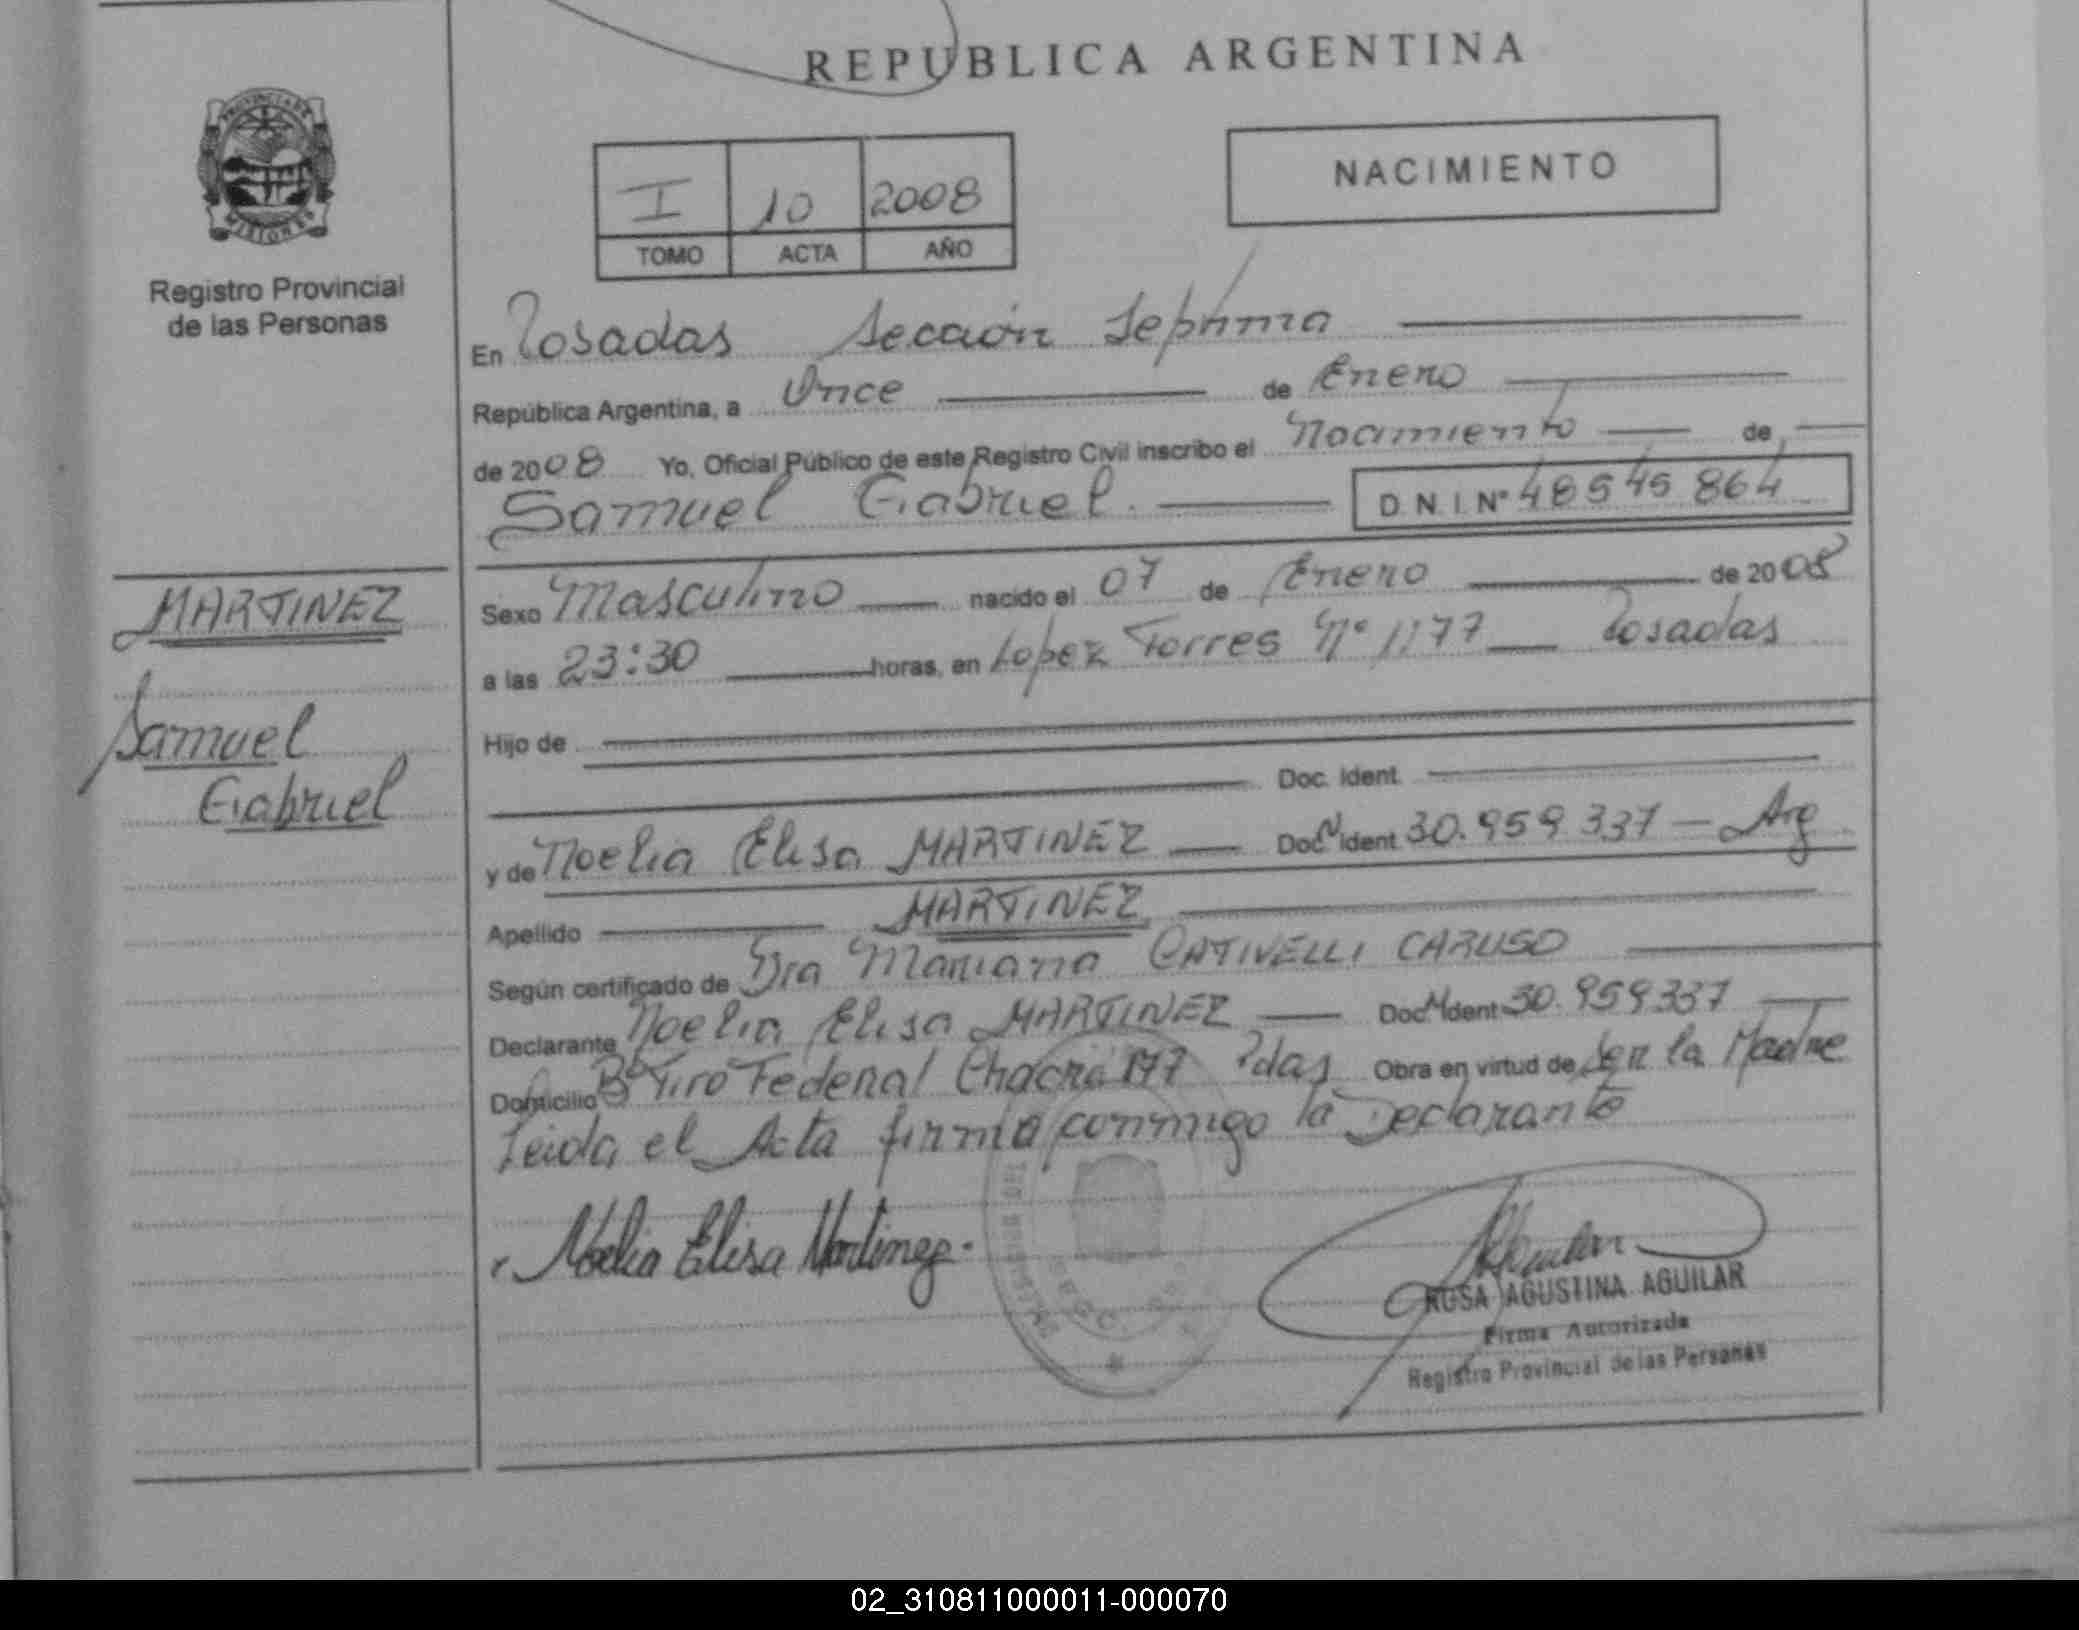 REPUBLICA ARGENTINA
PROVINCIA DE
MISIONES
Registro Provincial
de las Personas
I 10 2008
TOMO ACTA AÑO
NACIMIENTO
En Posadas Sección Septima
República Argentina, a Once de Enero
de 2008 Yo, Oficial Público de este Registro Civil inscribo el Nacimiento de
Samuel Gabriel. D.N.I. Nº 48545864
MARTINEZ
Samuel
Gabriel
Sexo Masculino nacido el 07 de Enero de 2008
a las 23:30 horas, en Lopez Torres Nº 1177 Posadas
Hijo de
Doc. Ident.
y de Noelia Elisa MARTINEZ Doc. N Ident 30.959337 - Arg
Apellido MARTINEZ
Según certificado de Dra Mariana CARUSO
Declarante Noelia Elisa MARTINEZ Doc. N Ident 30.959337
Domicilio Bº Tiro Federal Chacra 177 Pdas Obra en virtud de Ser la Madre
Leida el Acta firma conmigo la Declarante
Noelia Elisa Martinez.
ROSA AGUSTINA AGUILAR
Firma Autorizada
Registro Provincial de las Personas
02_310811000011-000070